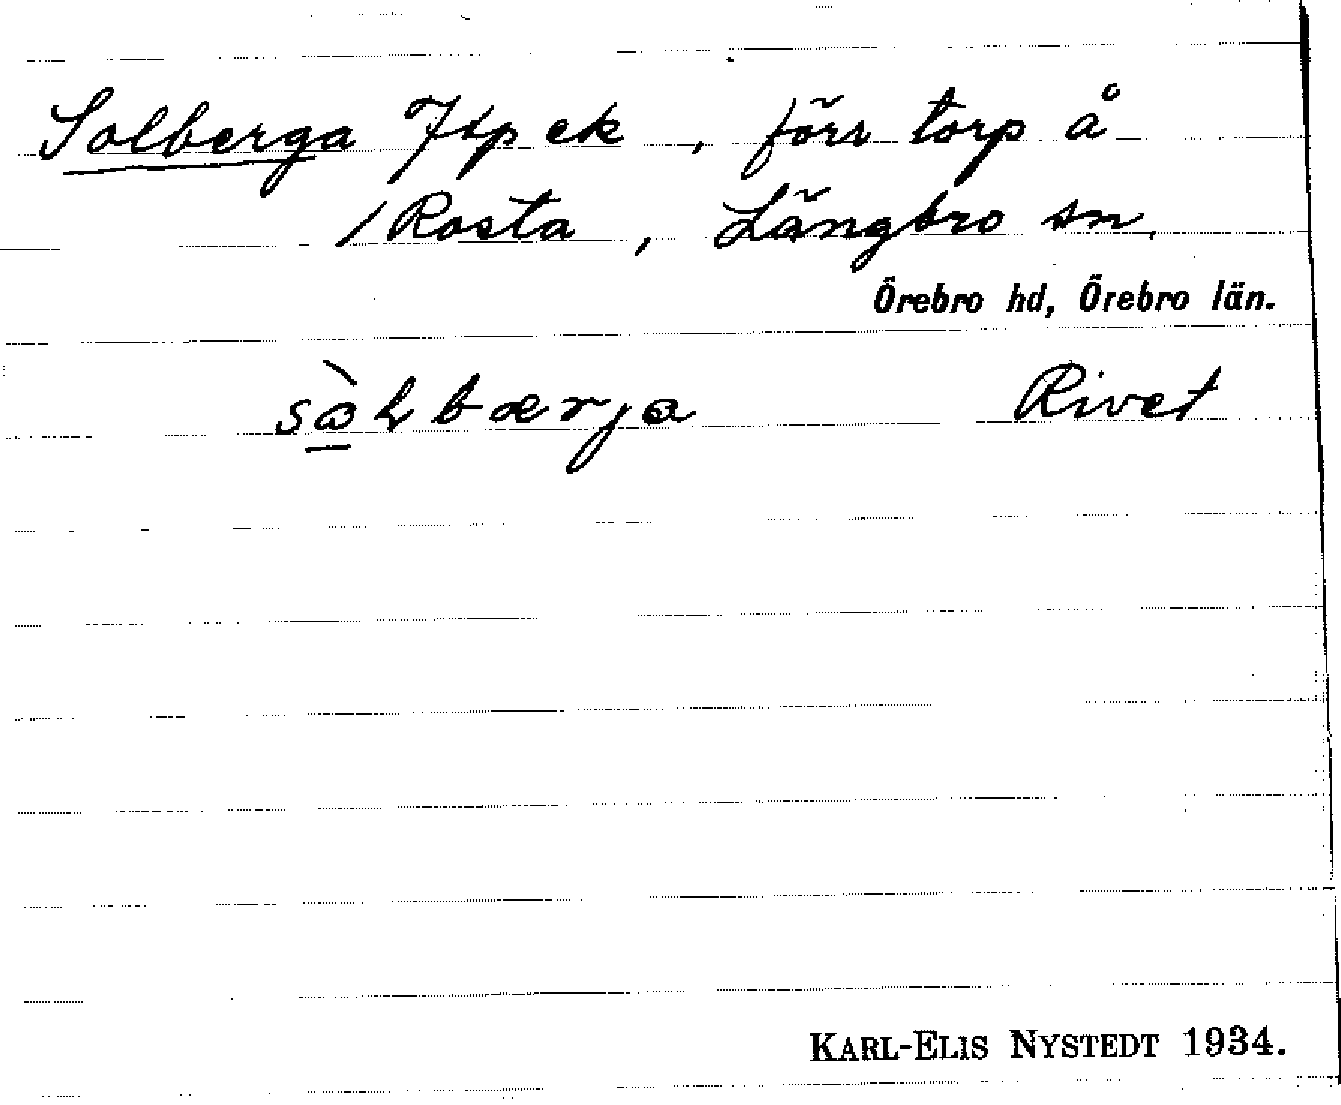 Solberga Jtp ek, förr torp å
/ Rosta, Längbro sn.
Örebro hd, Örebro län.
Rivet
KARL-ELIS NYSTEDT 1934.